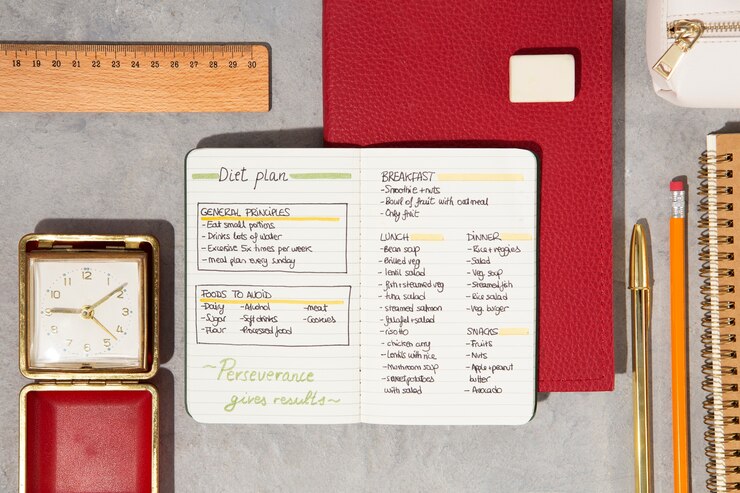 18 19 20 21 22 23 24 25 26 27 28 29 30
Diet plan
GENERAL PRINCIPLES
- Eat small portions
- Drinks lots of water
- Excersise 5x times per week
- meal plan every sunday
FOODS TO AVOID
- Dairy - Alcohol - meat
- Sugar - Soft drinks - Cookies
- Flour - Processed food
~Perseverance
gives results~
BREAKFAST
- Smoothie + nuts
- Bowl of fruit with oatmeal
- Only fruit
LUNCH
- Bean soup
- Grilled veg
- lentil salad
- fish + steamed veg
- tuna salad
- steamed salmon
- falafel + salad
- risotto
- chicken curry
- Lentils with rice
- Mushroom soup
- sweet potatoes
with salad
DINNER
- Rice + veggies
- Salad
- Veg. soup
- Steamed fish
- Rice salad
- Veg. burger
SNACKS
- Fruits
- Nuts
- Apple + peanut
butter
- Avocado
12
11 1
10 2
9 3
8 4
7 5
6